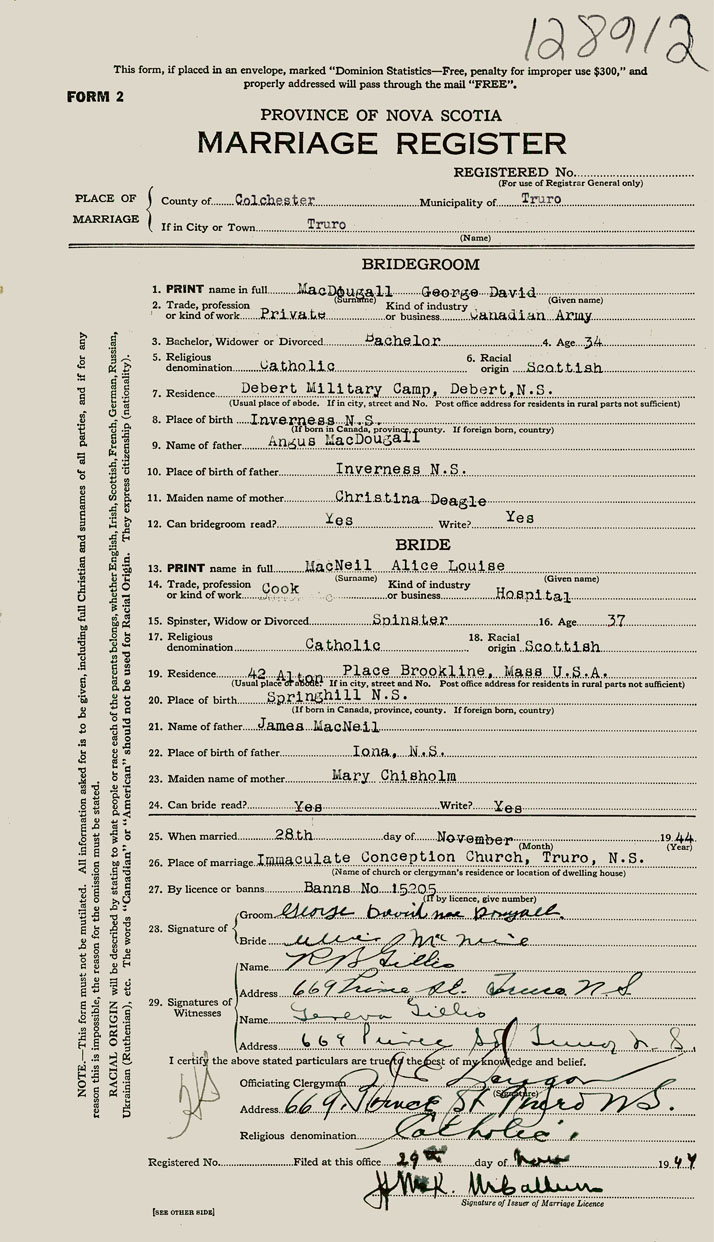 128912
This form, if placed in an envelope, marked "Dominion Statistics—Free, penalty for improper use $300," and
properly addressed will pass through the mail "FREE".
FORM 2
PROVINCE OF NOVA SCOTIA
MARRIAGE REGISTER
REGISTERED No.
(For use of Registrar General only)
PLACE OF MARRIAGE
County of Colchester Municipality of Truro
If in City or Town Truro
(Name)
BRIDEGROOM
1. PRINT name in full MacDougall George David
(Surname) (Given name)
2. Trade, profession or kind of work Private Kind of industry or business Canadian Army
3. Bachelor, Widower or Divorced Bachelor 4. Age 34
5. Religious denomination Catholic 6. Racial origin Scottish
7. Residence Debert Military Camp, Debert, N.S.
(Usual place of abode. If in city, street and No. Post office address for residents in rural parts not sufficient)
8. Place of birth Inverness N.S.
(If born in Canada, province, county. If foreign born, country)
9. Name of father Angus MacDougall
10. Place of birth of father Inverness N.S.
11. Maiden name of mother Christina Deagle
12. Can bridegroom read? Yes Write? Yes
BRIDE
13. PRINT name in full MacNeil Alice Louise
(Surname) (Given name)
14. Trade, profession or kind of work Cook Kind of industry or business Hospital
15. Spinster, Widow or Divorced Spinster 16. Age 37
17. Religious denomination Catholic 18. Racial origin Scottish
19. Residence 42 Alton Place Brookline, Mass U.S.A.
(Usual place of abode. If in city, street and No. Post office address for residents in rural parts not sufficient)
20. Place of birth Springhill N.S.
(If born in Canada, province, county. If foreign born, country)
21. Name of father James MacNeil
22. Place of birth of father Iona, N.S.
23. Maiden name of mother Mary Chisholm
24. Can bride read? Yes Write? Yes
25. When married 28th day of November 1944
(Month) (Year)
26. Place of marriage Immaculate Conception Church, Truro, N.S.
(Name of church or clergyman's residence or location of dwelling house)
27. By licence or banns Banns No 15205
(If by licence, give number)
28. Signature of
Groom George David MacDougall
Bride
29. Signatures of Witnesses
Name R B Gillis
Address 669 Prince St. Truro N S
Name Gillis
Address 669 Prince St Truro N. S.
I certify the above stated particulars are true to the best of my knowledge and belief.
Officiating Clergyman
(Signature)
Address 669 Prince St Truro N S.
Religious denomination Catholic
Registered No. Filed at this office 29th day of Nov 1944
Signature of Issuer of Marriage Licence
[SEE OTHER SIDE]
NOTE.—This form must not be mutilated. All information asked for is to be given, including full Christian and surnames of all parties, and if for any
reason this is impossible, the reason for the omission must be stated.
RACIAL ORIGIN will be described by stating to what people or race each of the parents belongs, whether English, Irish, Scottish, French, German, Russian,
Ukrainian (Ruthenian), etc. The words "Canadian" or "American" should not be used for Racial Origin. They express citizenship (nationality).